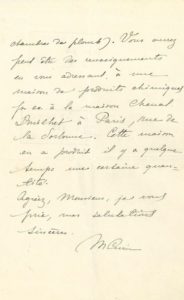 chambres de plomb). Vous aurez
peut être des renseignements
en vous adressant à une
maison de produits chimiques
à la maison Chenal
à Paris, rue de
la Sorbonne. Cette maison
en a produit il y a quelque
temps une certaine quan-
tité.
Agréez, Monsieur, je vous
prie, mes salutations
sincères.
M Curie